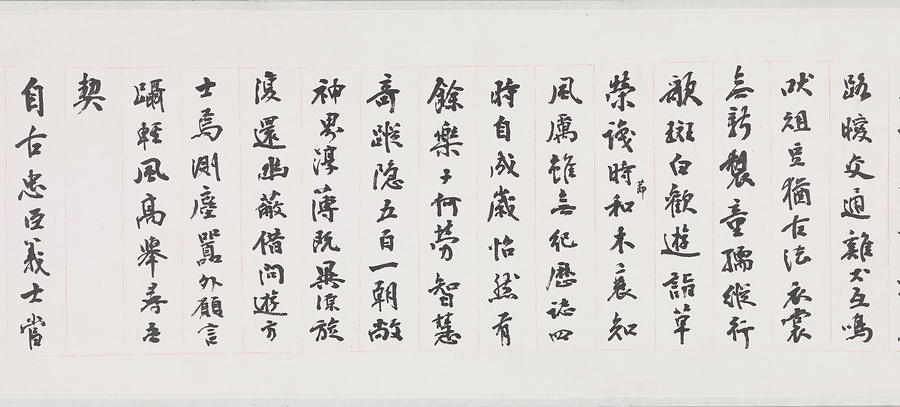 路暧交通雞犬互鳴
吠俎豆猶古法衣裳
無新製童孺縱行
歌斑白歡遊詣草
榮識時和木衰知
節
風厲雖無紀歷誌四
時自成歲怡然有
餘樂于何勞智慧
奇蹤隱五百一朝敞
神界淳薄既異源旋
復還幽蔽借問遊方
士焉測塵囂外願言
躡輕風高舉尋吾
契
自古忠臣義士當